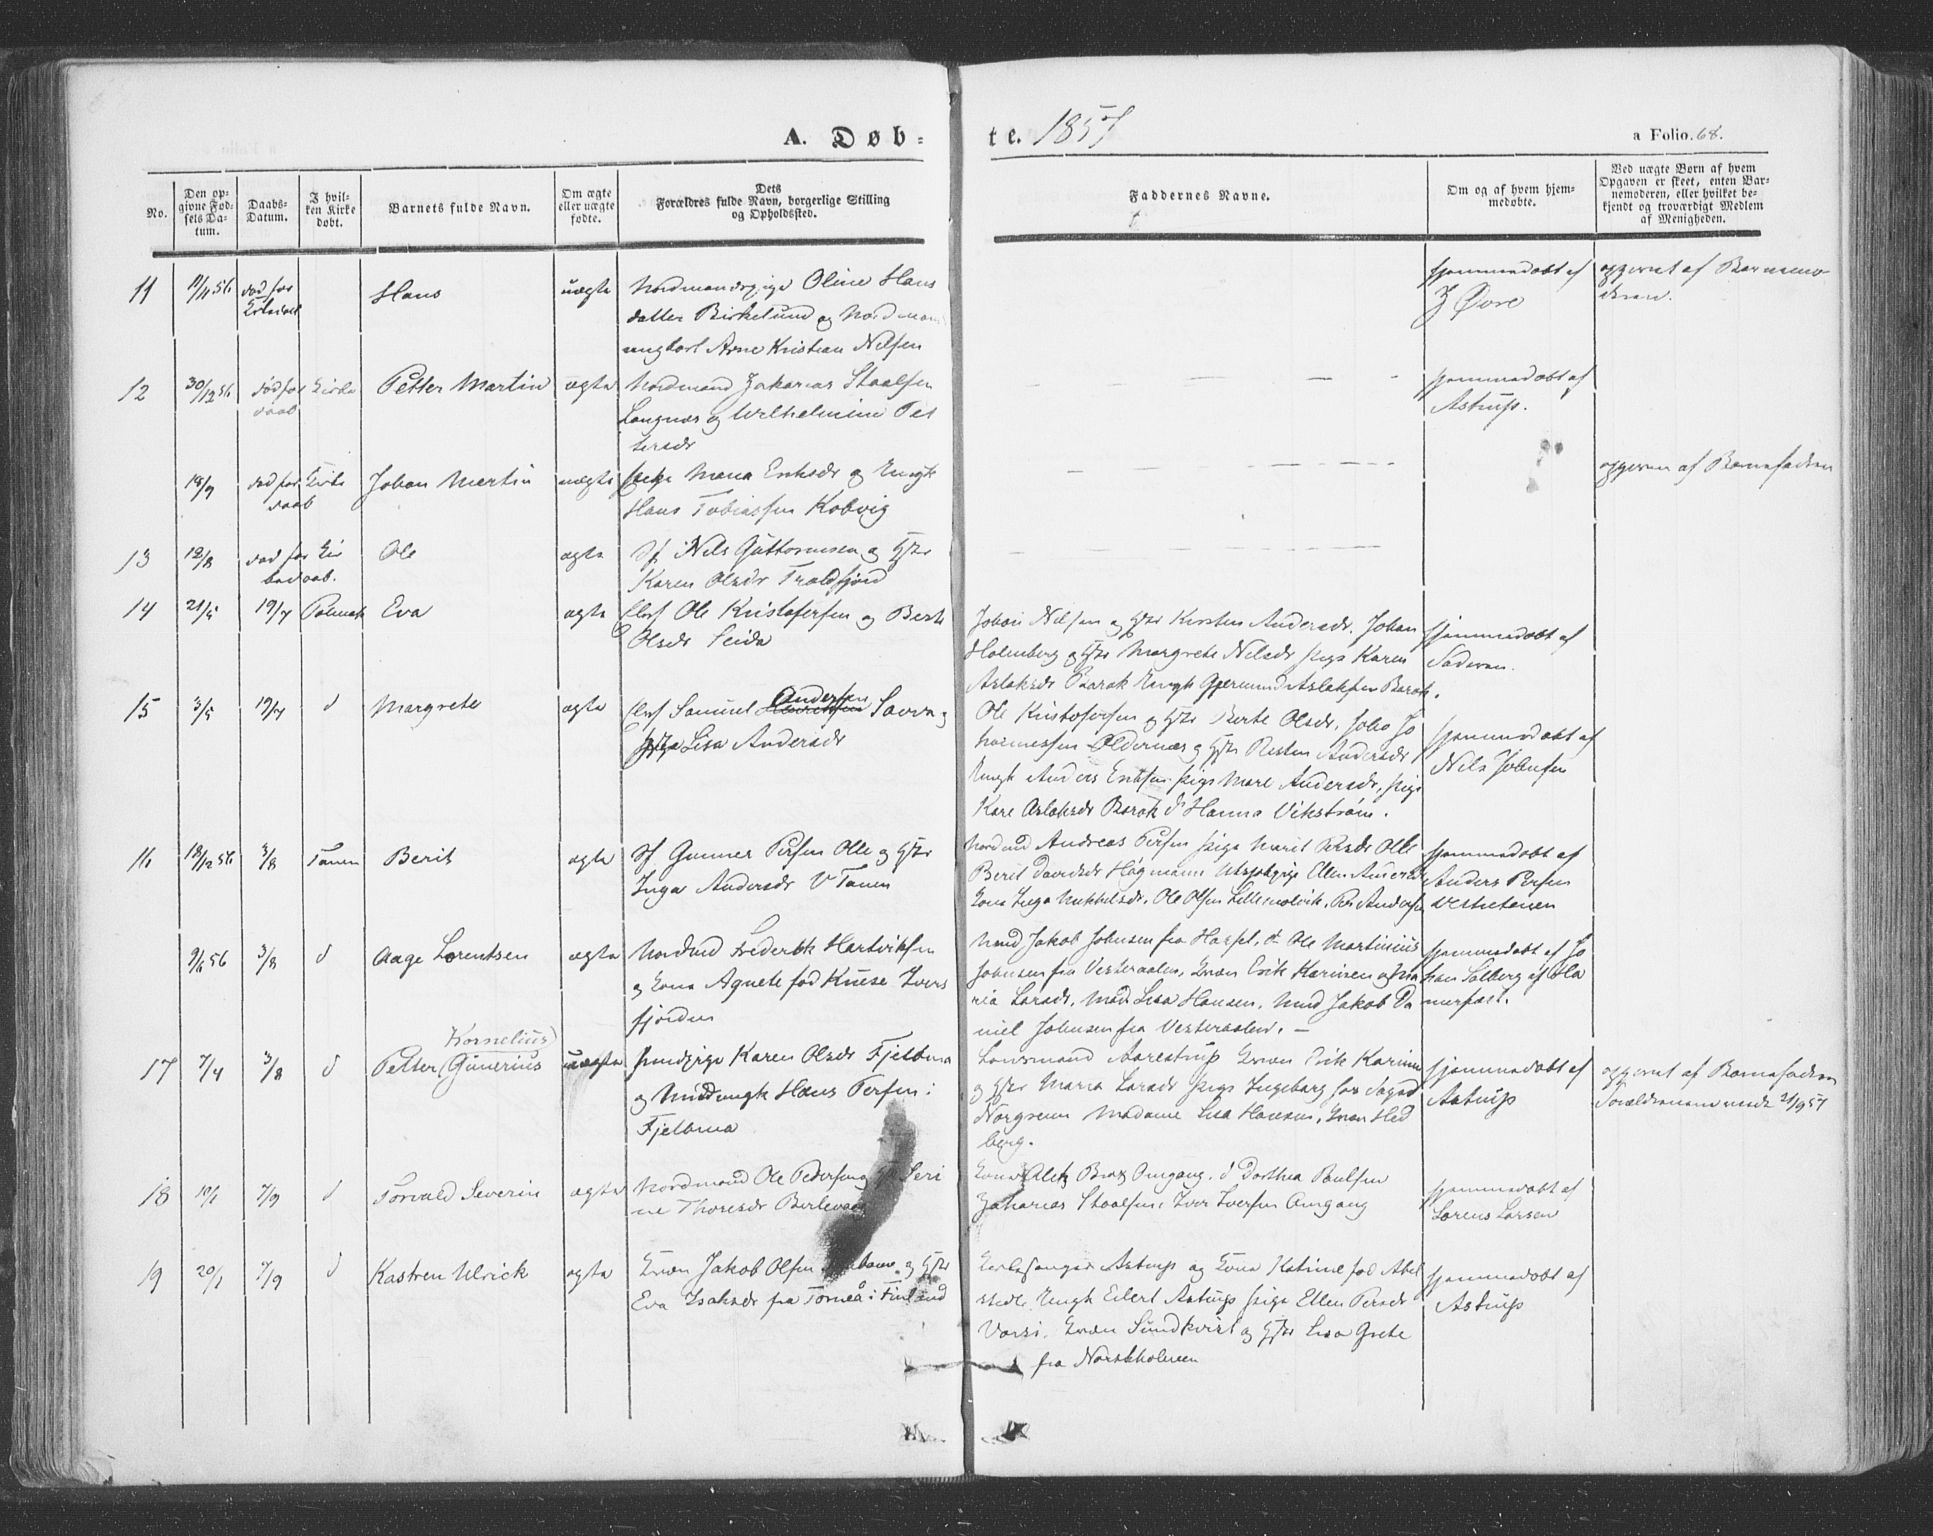 A. Døb-
te. 1857
a Folio. 68.
No.
Den op-
givne Fød-
sels Da-
tum.
Daabs-
Datum.
I hvil-
ken Kirke
døbt.
Barnets fulde Navn.
Om ægte
eller uægte
fødte.
Dets
Forældres fulde Navn, borgerlige Stilling
og Opholdssted.
Faddernes Navne.
Om og af hvem hjem-
medøbte.
Ved uægte Børn af hvem
Opgaven er skeet, enten Bar-
nemoderen, eller hvilket be-
kjendt og troværdigt Medlem
af Menigheden.
11
død før
Hans
uægte
Oline Hans
datter Birkelund og Nordmand
ungkarl Arne Kristian Nilsen
hjemmedøbt af
J Øvre
opgivet af Barnemo-
deren.
12 30/12 56
død før
daab
Kirke
Petter Martin
ægte
Nordmand Zakarias Staalsen
Langnæs og Wilhelmine Pet
tersdr
hjemmedøbt af
Astrup.
18/9
død før
daab
Kirke
Johan Martin
uægte
Pige Maria Eriksdr og Ungk
Hans Tobiassen Kobvig
opgiven af Barnefaderen
13 18/8
død før Kir
kedaab.
Ole
ægte
Sf Nils Guttormsen og Hstr
Karen Olsdr Troldfjord
14 21/5 19/7 Polmak
Eva
ægte
Elvf Ole Kristofersen og Berte
Olsdr Seida
Johan Nilsen og Hstr Kirsten Andersdr. Johan
Holmberg og Hstr Margrete Nilsdr Pige Karen
Aslaksdr Barok Ungk Gjermund Aslaksen Barok.
hjemmedøbt af
15 3/5 19/7 d
Margrete
ægte
Elvf Samuel Andersen Savva og
Hstr Lisa Andersdr
Ole Kristofersen og Hstr Berte Olsdr, John Jo
hannessen Oldernæs og Hstr Kirsten Andersdr
Ungk Anders Eriksen Pige Mare Andersdr, Pige
Kare Aslaksdr Barok d Hanna Vikstrøm.
hjemmedøbt af
Nils Johnsen
16 18/12 56 3/8 Tanen
Berit
ægte
Sf Gunner Persen Olle og Hstr
Inga Andersdr V Tanen
Nordmd Andreas Persen Pige Marit Persdr Olle
Berit Davidsdr Høgmann Ellen Andersdr
Kona Inga Mikkelsdr, Ole Olsen Lillemolvik, Per Andersen
hjemmedøbt af
Anders Persen
Vestretanen
9/6 56 3/8 d
Aage Lorentsen
ægte
Nordmd Frederik Hartviksen
og Kona Agnete fød Kruse Ivers
fjorden
Nmd Jakob Johnsen fra Hassel, d Ole Martinius
Johnsen fra Vesteraalen, Kvæn Erik Karinen og Ma
ria Larsdr, Mad. Lisa Hansen, Nmd Jakob Da
niel Johnsen fra Vesteraalen. –
hjemmedøbt af Jo
han Solberg af Ha
merfæst.
17 7/4 3/8 d
Kornelius)
Petter (Gunerius
uægte
Karen Olsdr Fjelbma
og Nmdungk Hans Persen i
Fjelbma
Lensmand Aarestrup Kvæn Erik Karinen
og Hstr Maria Larsdr Pige Ingeborg
Norgreen Madame Lisa Hansen, Kvæn Hed
berg.
hjemmedøbt af
Astrup
opgivet af Barnefaderen
Forældrene 21/9 57
18 19/1 7/9 d
Torvald Severin
ægte
Nordmand Ole Pedersen og Hstr Seri
ne Thoresdr Berlevaag
Omgang. d Dorthea Paulsen
Zakarias Staalsen, Iver Iversen Omgang
hjemmedøbt af
Lorens Larsen
19 20/1 7/9 d
Kastren Ulrick
ægte
Kvæn Jakob Olsen og Hstr
Eva Isaksdr fra Torneå i Finland
Kirkesanger Astrup og Kona Katrine fød Abel
stedt. Ungk Eilert Astrup Pige Ellen Persdr
Varsi. Kvæn Sundkvist og Hstr Lisa Grete
fra Norskholmen
hjemmedøbt af
Astrup